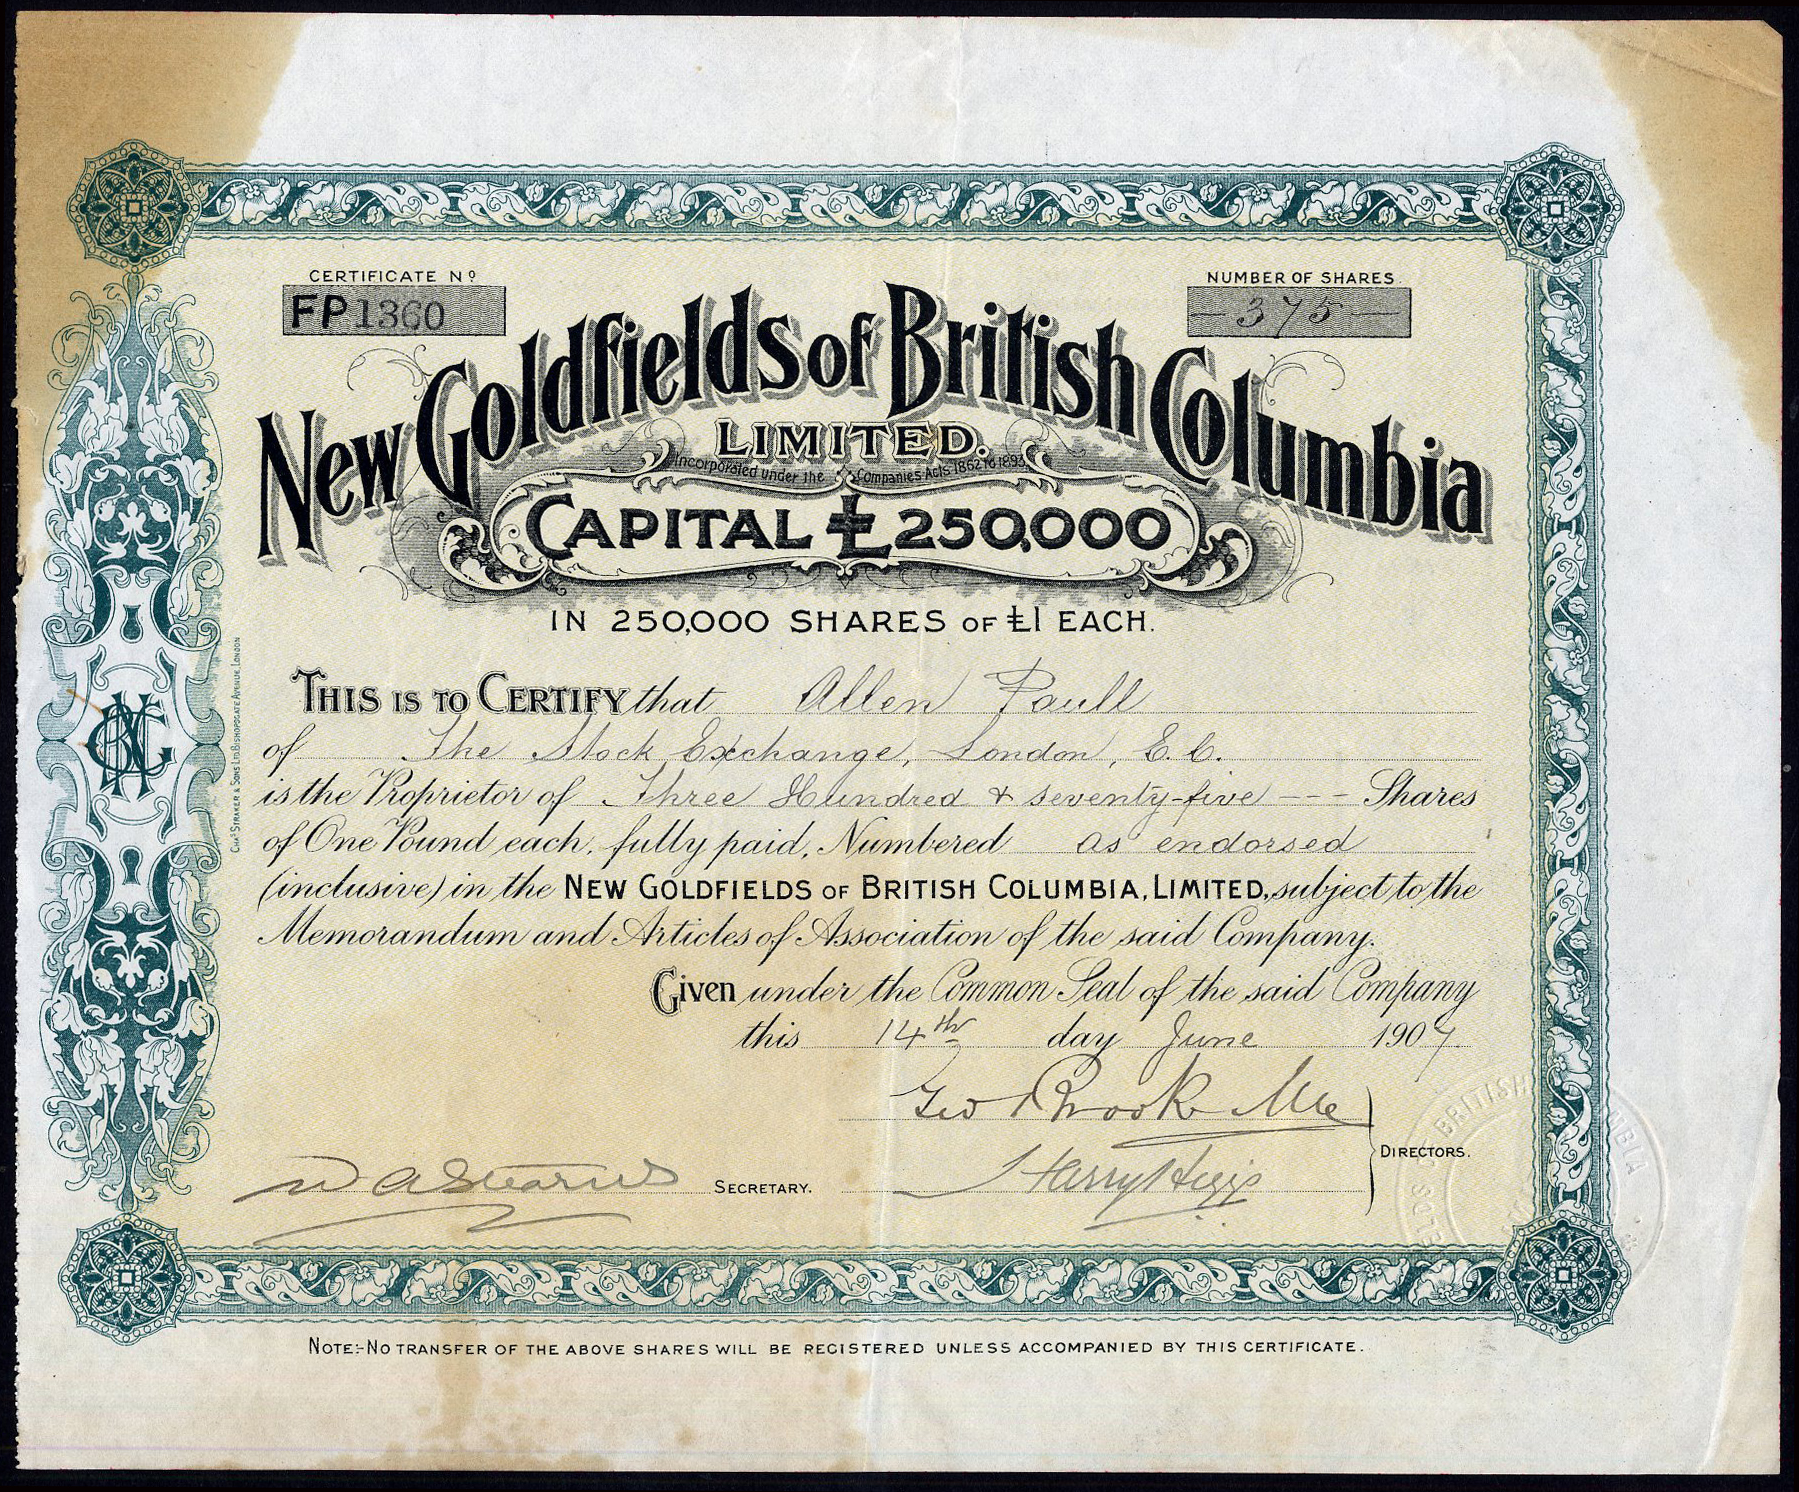 CERTIFICATE Nº
FP1360
NUMBER OF SHARES
— 375 —
New Goldfields of British Columbia
LIMITED.
Incorporated under the Companies Acts 1862 to 1893
CAPITAL £250,000
IN 250,000 SHARES OF £1 EACH.
THIS IS TO CERTIFY that Allen Paull
of The Stock Exchange, London, E.C.
is the Proprietor of Three Hundred & seventy-five --- Shares
of One Pound each, fully paid, Numbered as endorsed
(inclusive) in the NEW GOLDFIELDS OF BRITISH COLUMBIA, LIMITED, subject to the
Memorandum and Articles of Association of the said Company.
Given under the Common Seal of the said Company
this 14th day June 1907
Harry Higgs
DIRECTORS.
SECRETARY.
CHAS STRAKER & SONS LTD BISHOPSGATE AVENUE, LONDON
BRITISH
NOTE:-NO TRANSFER OF THE ABOVE SHARES WILL BE REGISTERED UNLESS ACCOMPANIED BY THIS CERTIFICATE.